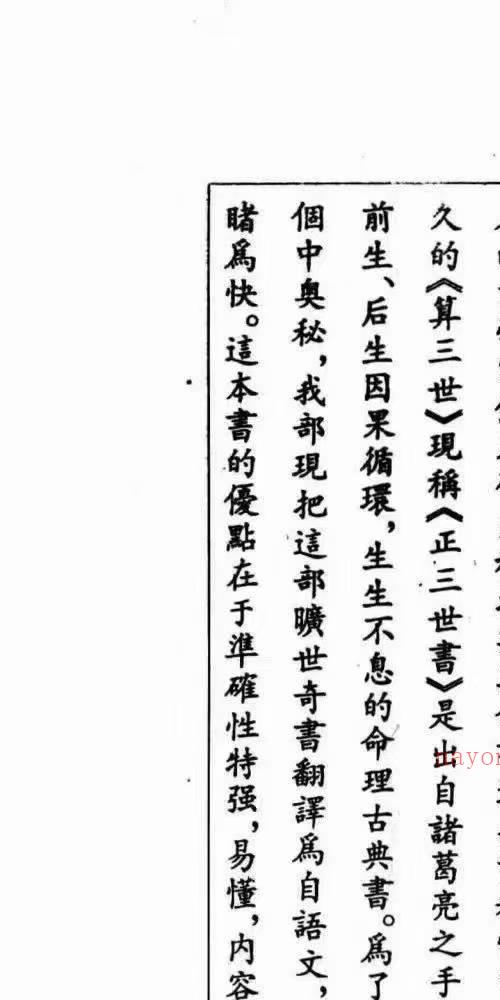 久的《算三世》現稱《正三世書》是出自諸葛亮之手
前生、后生因果循環，生生不息的命理古典書。爲了
個中奥秘，我部現把這部曠世奇書翻譯爲自語文，
睹爲快。這本書的優點在于準確性特强，易懂，内容
nayon